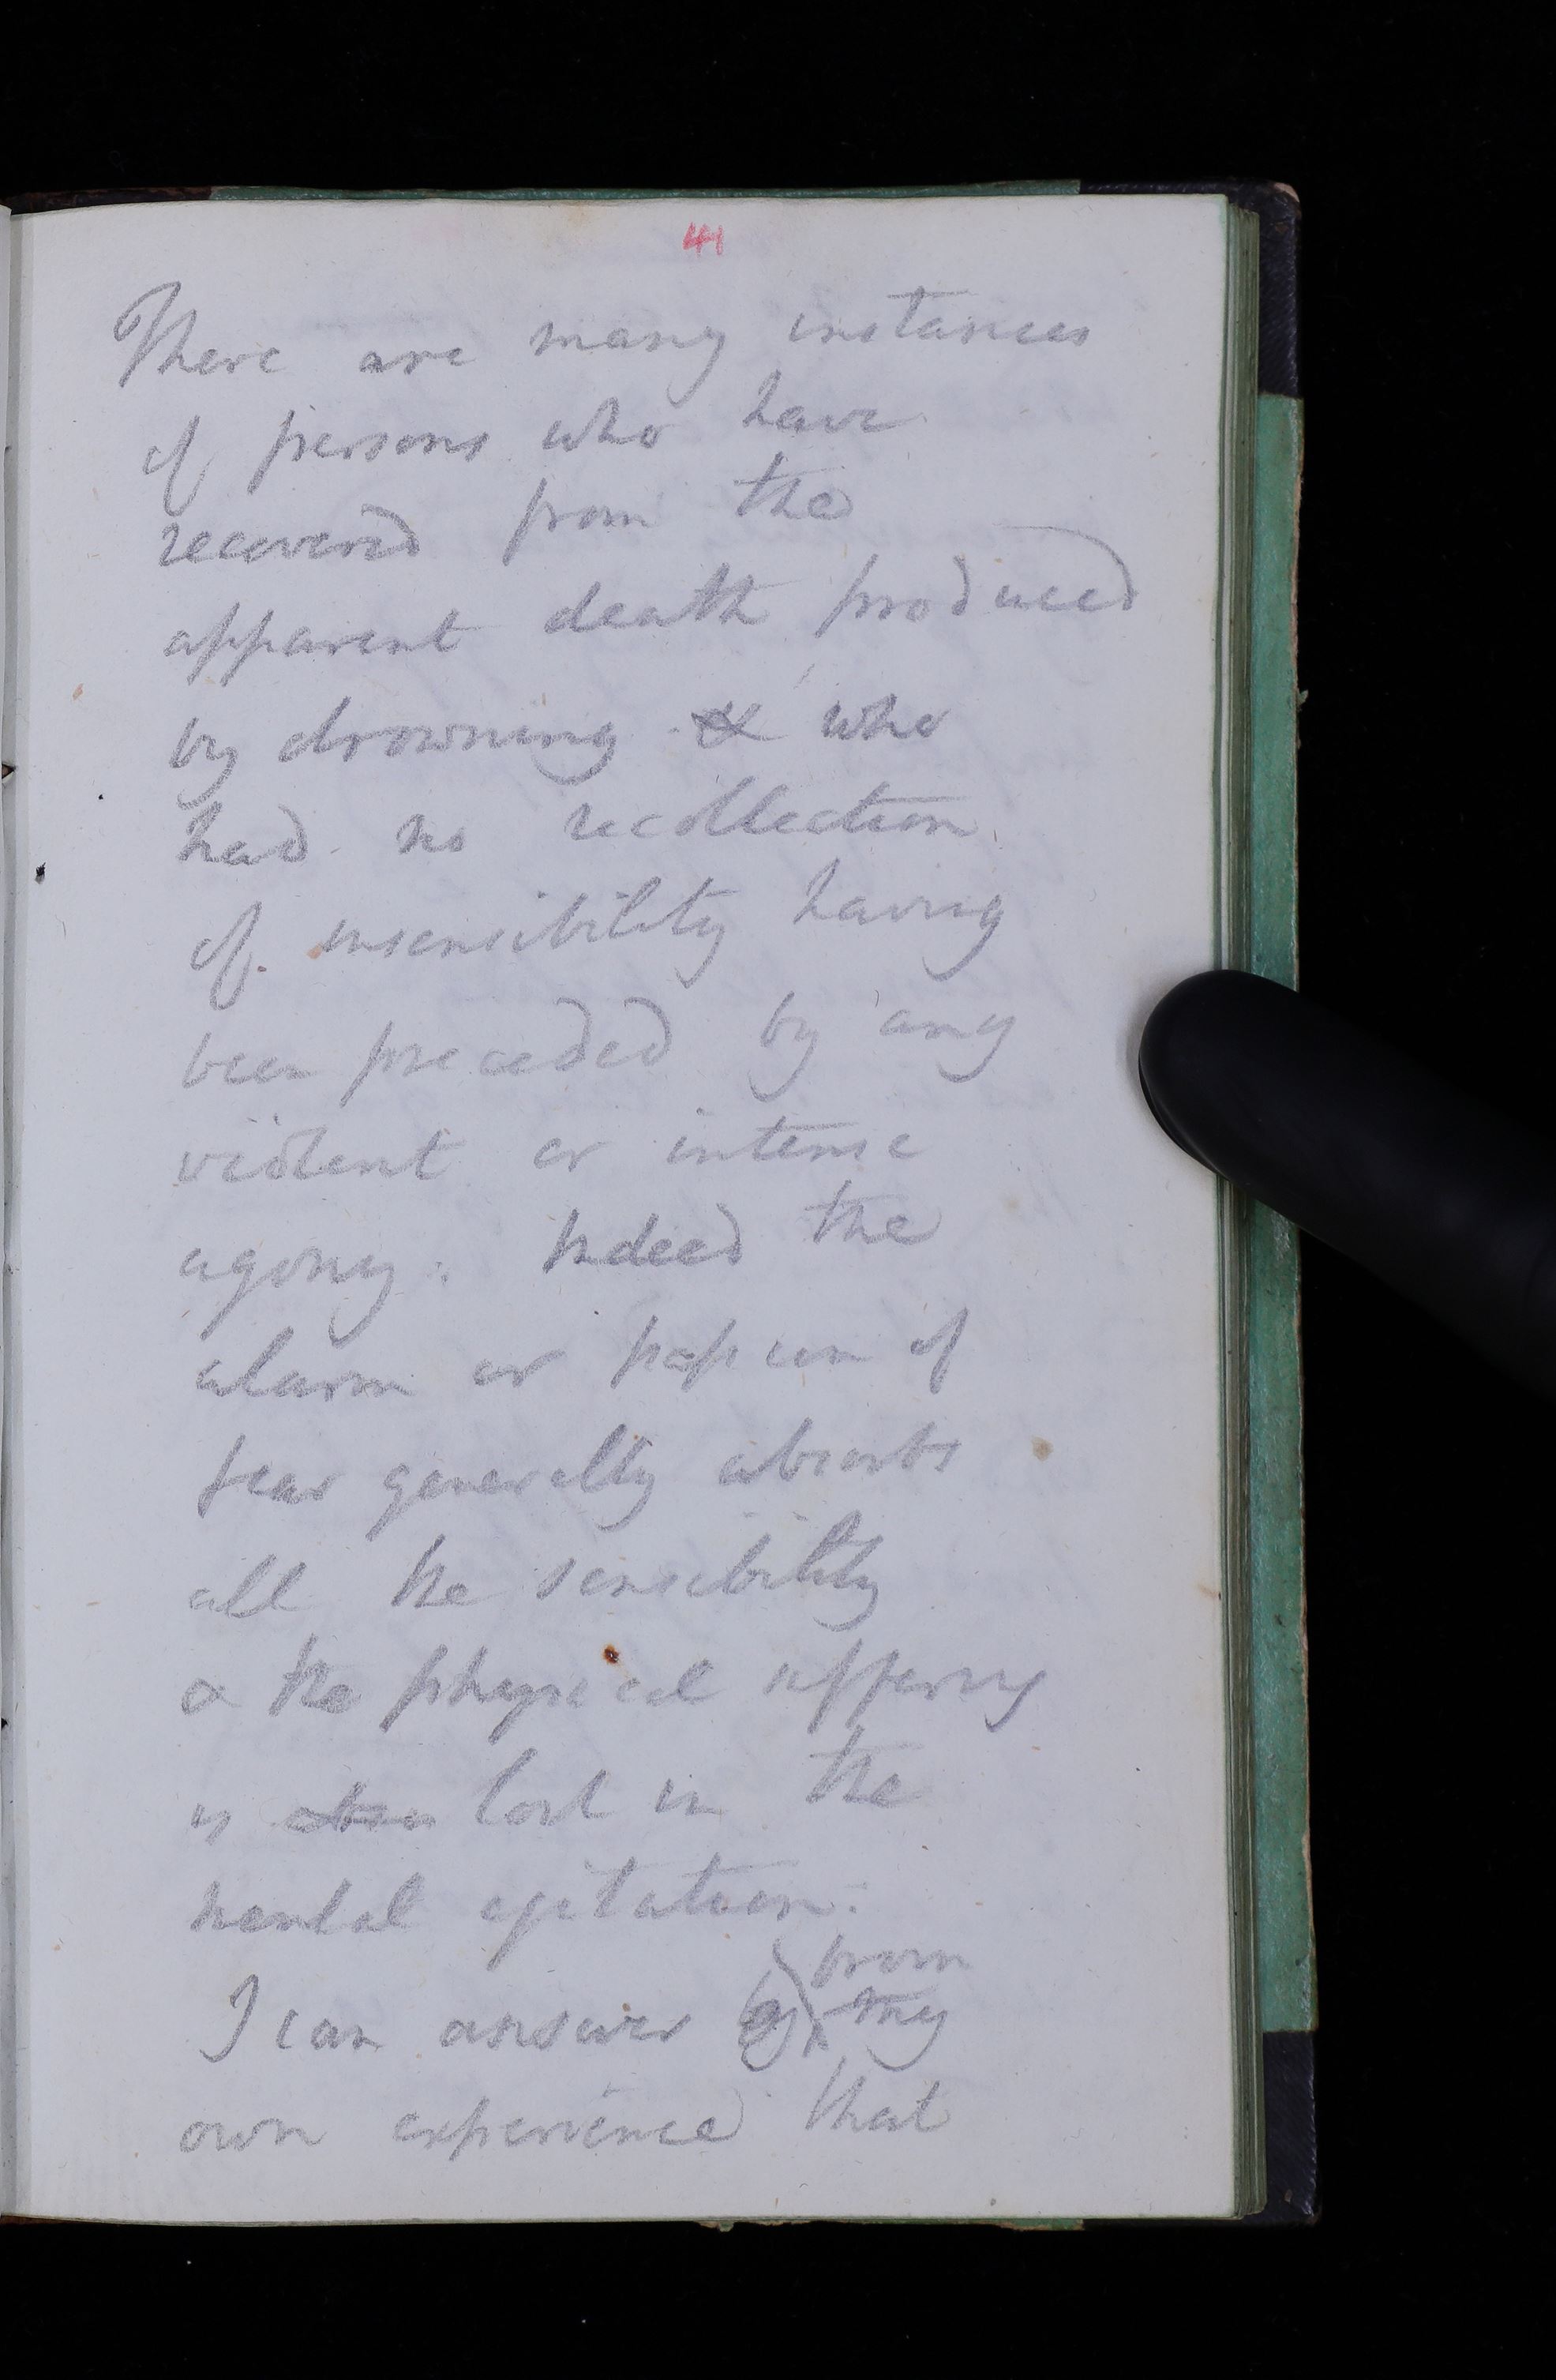 41
There are many instances
of persons who have
recovered from the
apparent death produced
by drowning & who
had no recollection
of insensibility having
been preceded by any
violent or intense
agony: Indeed the
alarm or passion of
fear generally absorbs
all the sensibility
& the physical suffering
is lost in the
mental agitation:
from
I can answer by my
own experience that